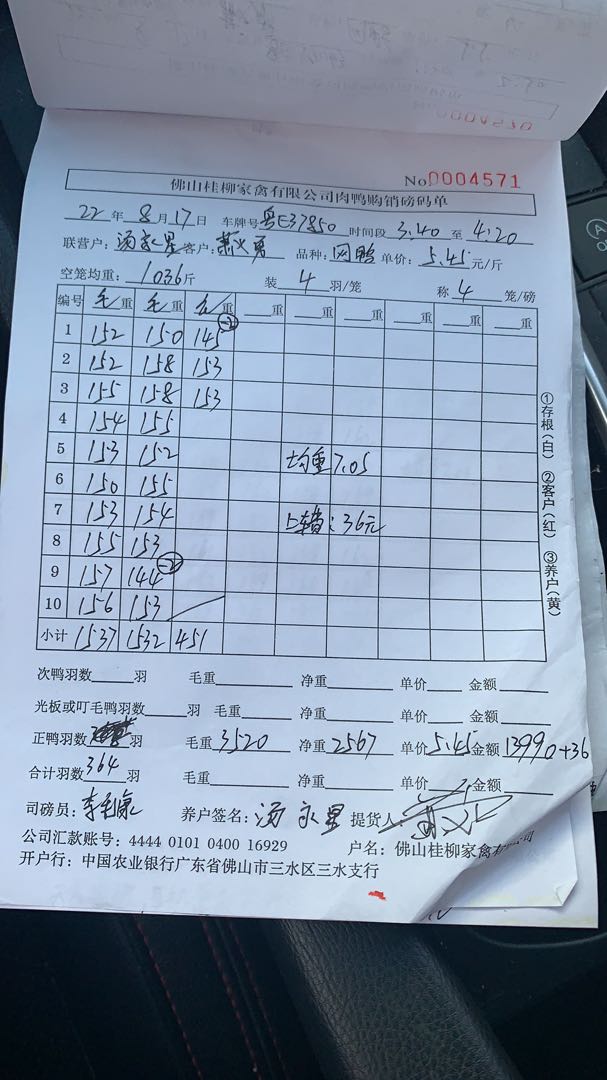 No 0004571
佛山桂柳家禽有限公司肉鸭购销磅码单
22年8月17日 车牌号粤E37850 时间段3.40至4.20
联营户: 客户: 品种: 单价:5.45元/斤
空笼均重:1036斤 装4羽/笼 称4笼/磅
编号 毛重 毛重 毛重 重 重 重 重 重 重
1 152 150 145 -2
2 152 158 153
3 155 158 153
4 154 155
5 153 152 均重7.05
6 150 155
7 153 154 上车费:36元
8 155 153
9 157 144 -2
10 156 153
小计 1537 1532 451
次鸭羽数 羽 毛重 净重 单价 金额
光板或叮毛鸭羽数 羽 毛重 净重 单价 金额
正鸭羽数 羽 毛重3520 净重2567 单价5.45 金额13990+36
合计羽数364羽 毛重 净重 单价 金额
司磅员: 养户签名: 提货人:
公司汇款账号: 4444 0101 0400 16929 户名: 佛山桂柳家禽有限公司
开户行: 中国农业银行广东省佛山市三水区三水支行
①存根(白) ②客户(红) ③养户(黄)